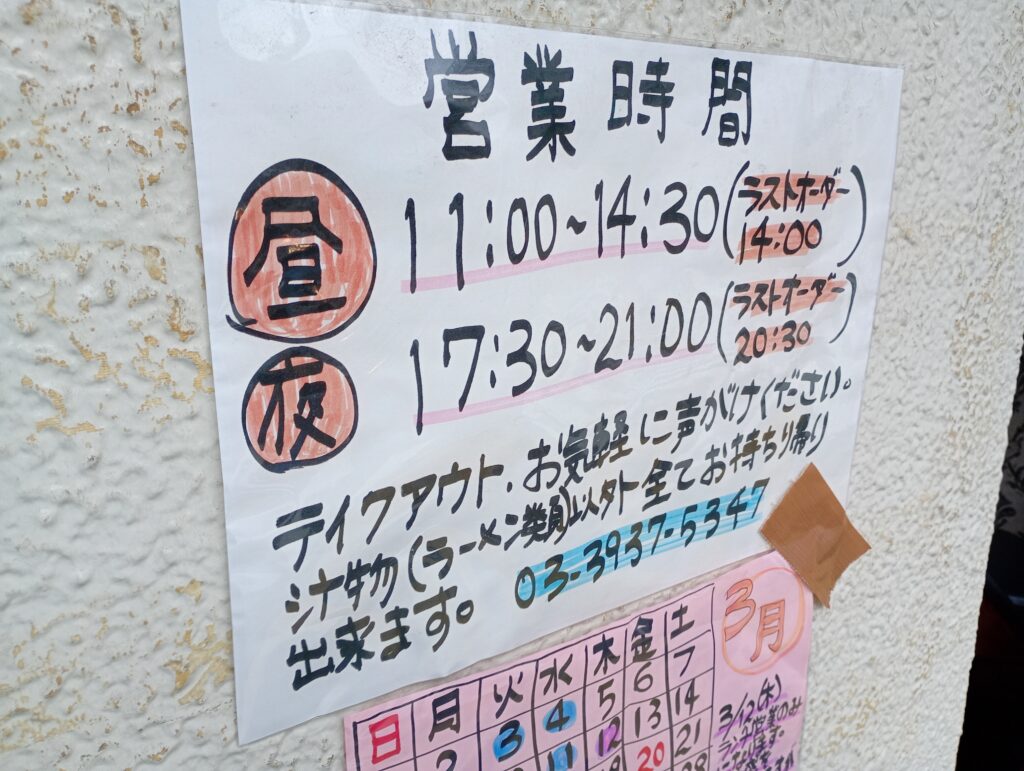 営業時間
昼 11:00~14:30(ラストオーダー 14:00)
夜 17:30~21:00(ラストオーダー 20:30)
テイクアウト、お気軽に声がけください。
汁物(ラーメン類)以外全てお持ち帰り
出来ます。 03-3937-5347
3月
日 月 火 水 木 金 土
2 3 4 5 6 7
11 12 13 14
20 21
3/12(木)
ランチ営業のみ
になります。